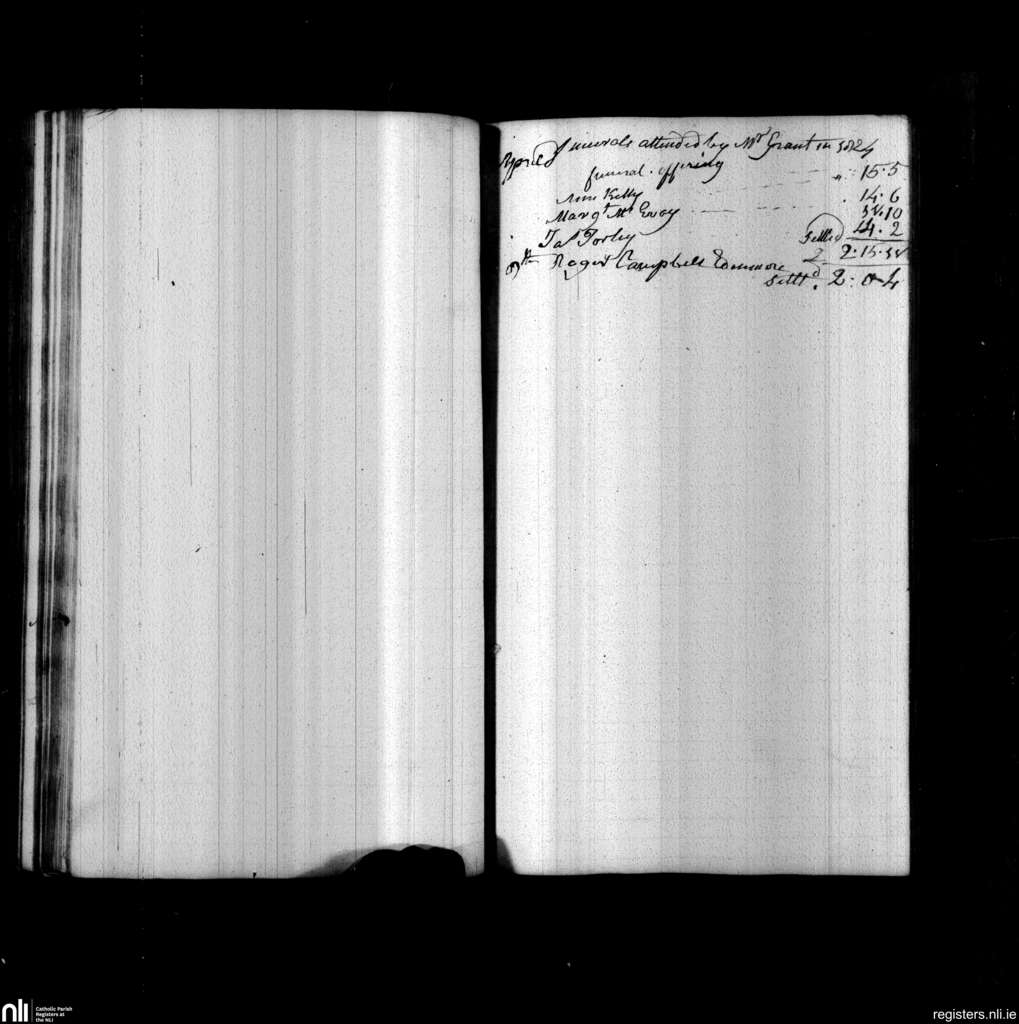 Funerals attended by Mr Grant in 1824
April funeral offering " 15.5
Ann Kelly . 14.6
Margt Mc Evoy 11.10
Jas Torley Settled 14.2
2.15.11
8th Roger Campbell Edenmore
Settd. 2.0.4
nli Catholic Parish
Registers at
the NLI
registers.nli.ie